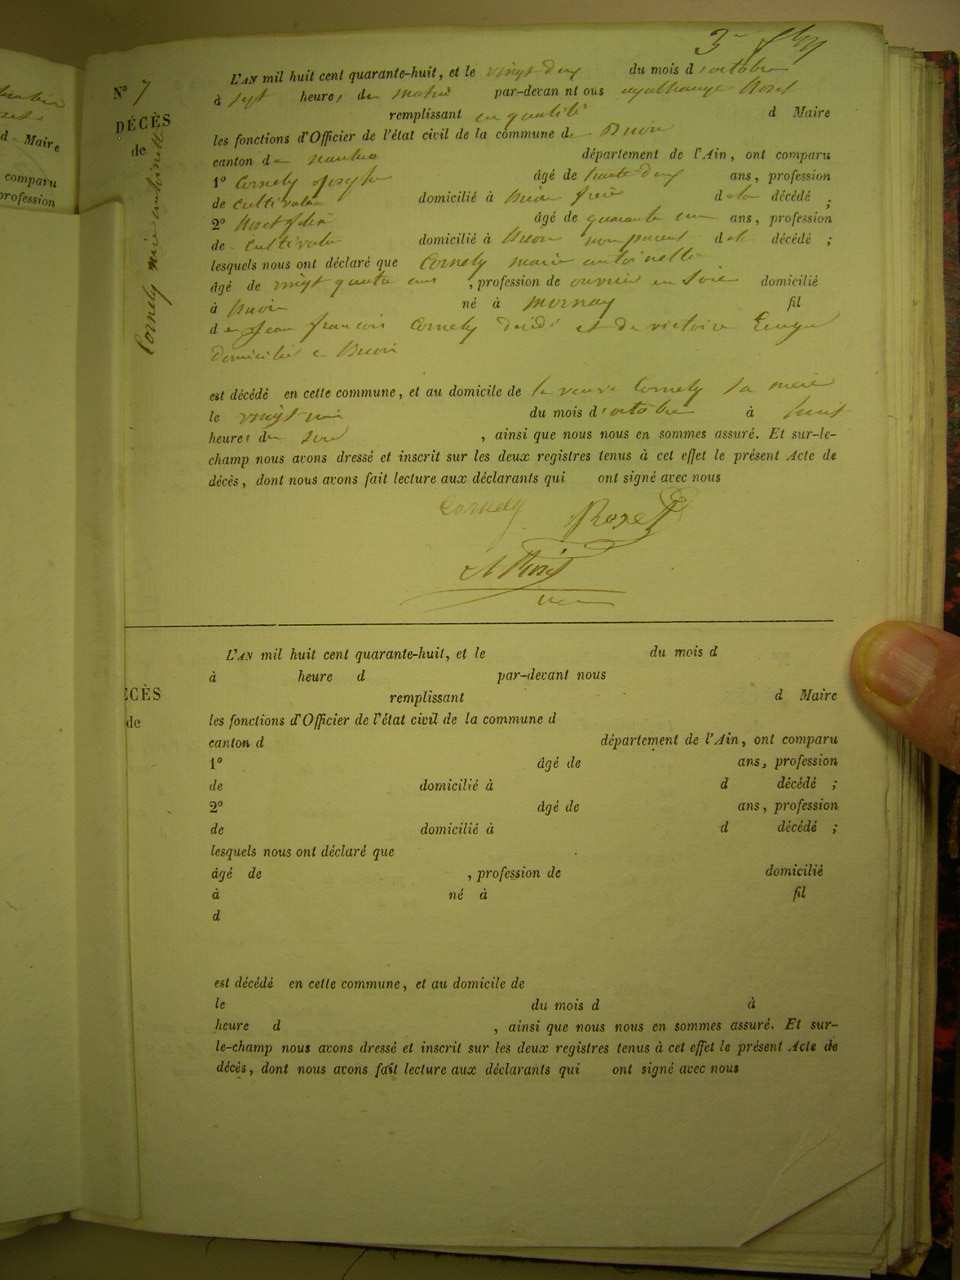 N° 7
DÉCÈS
de
Cornely
L'AN mil huit cent quarante-huit, et le vingt deux du mois d'octobre
à sept heures du matin par-devant nous Rozet
remplissant en qualité d Maire
les fonctions d'Officier de l'état civil de la commune de
canton de département de l'Ain, ont comparu
1° Cornely Joseph âgé de ans, profession
de cultivateur domicilié à frère de la décédé ;
2° âgé de quarante cinq ans, profession
de cultivateur domicilié à non parent de la décédé ;
lesquels nous ont déclaré que Cornely marie antoinette
âgé de vingt quatre ans , profession de ouvrière en soie domicilié
à né à Mornay fil
de Jean françois Cornely décédé et de victoire
domiciliée à
est décédé en cette commune, et au domicile de la veuve Cornely sa mère
le vingt un du mois d'octobre à huit
heures du soir , ainsi que nous nous en sommes assuré. Et sur-le-
champ nous avons dressé et inscrit sur les deux registres tenus à cet effet le présent Acte de
décès, dont nous avons fait lecture aux déclarants qui ont signé avec nous
Cornely Rozet
L'AN mil huit cent quarante-huit, et le du mois d
à heure d par-devant nous
remplissant d Maire
ÉCÈS
de
les fonctions d'Officier de l'état civil de la commune d
canton d département de l'Ain, ont comparu
1° âgé de ans, profession
de domicilié à d décédé ;
2° âgé de ans, profession
de domicilié à d décédé ;
lesquels nous ont déclaré que
âgé de , profession de domicilié
à né à fil
d
est décédé en cette commune, et au domicile de
le du mois d à
heure d , ainsi que nous nous en sommes assuré. Et sur-
le-champ nous avons dressé et inscrit sur les deux registres tenus à cet effet le présent Acte de
décès, dont nous avons fait lecture aux déclarants qui ont signé avec nous
d Maire
comparu
profession